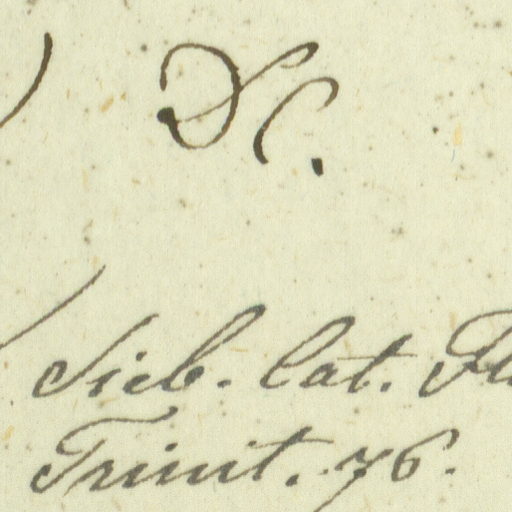 DC.
Sieb. Cat. Fl
Trinit. 76.